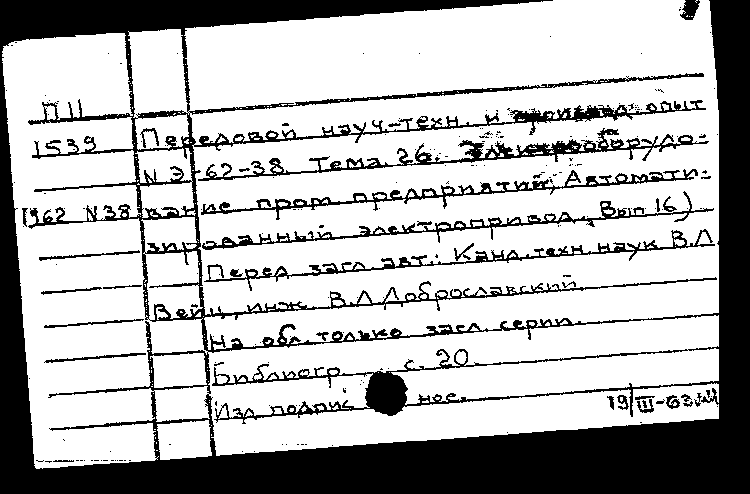 П 11
1539 Передовой науч-техн. и производ опыт
N Э-62-38. Тема. 26. Электрооборудо-
1962 N38 вание пром предприятий; Автомати-
зированный электропривод, Вып 16)
Перед загл. авт.: Канд. техн. наук В.Л.
Вейц, инж. В.Л. Доброславский.
На обл. только загл. серии.
Библиогр. с. 20.
Изд подпис нос.
19/III-63